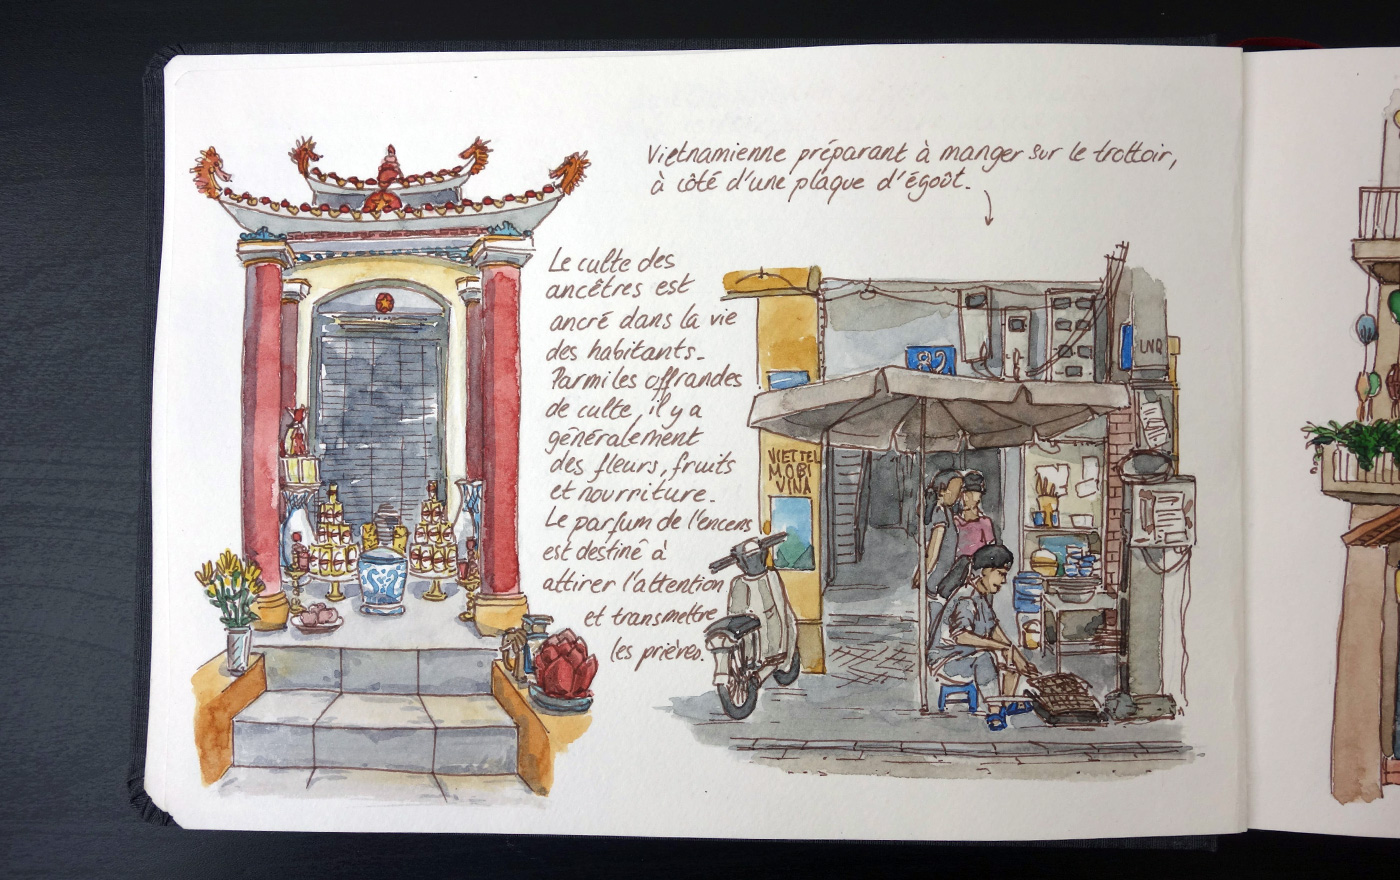 Vietnamienne préparant à manger sur le trottoir,
à côté d'une plaque d'égoût.
Le culte des
ancêtres est
ancré dans la vie
des habitants.
Parmi les offrandes
de culte, il y a
généralement
des fleurs, fruits
et nourriture.
Le parfum de l'encens
est destiné à
attirer l'attention
et transmettre
les prières.
82
UNQ
VIETTEL
MOBI
VINA